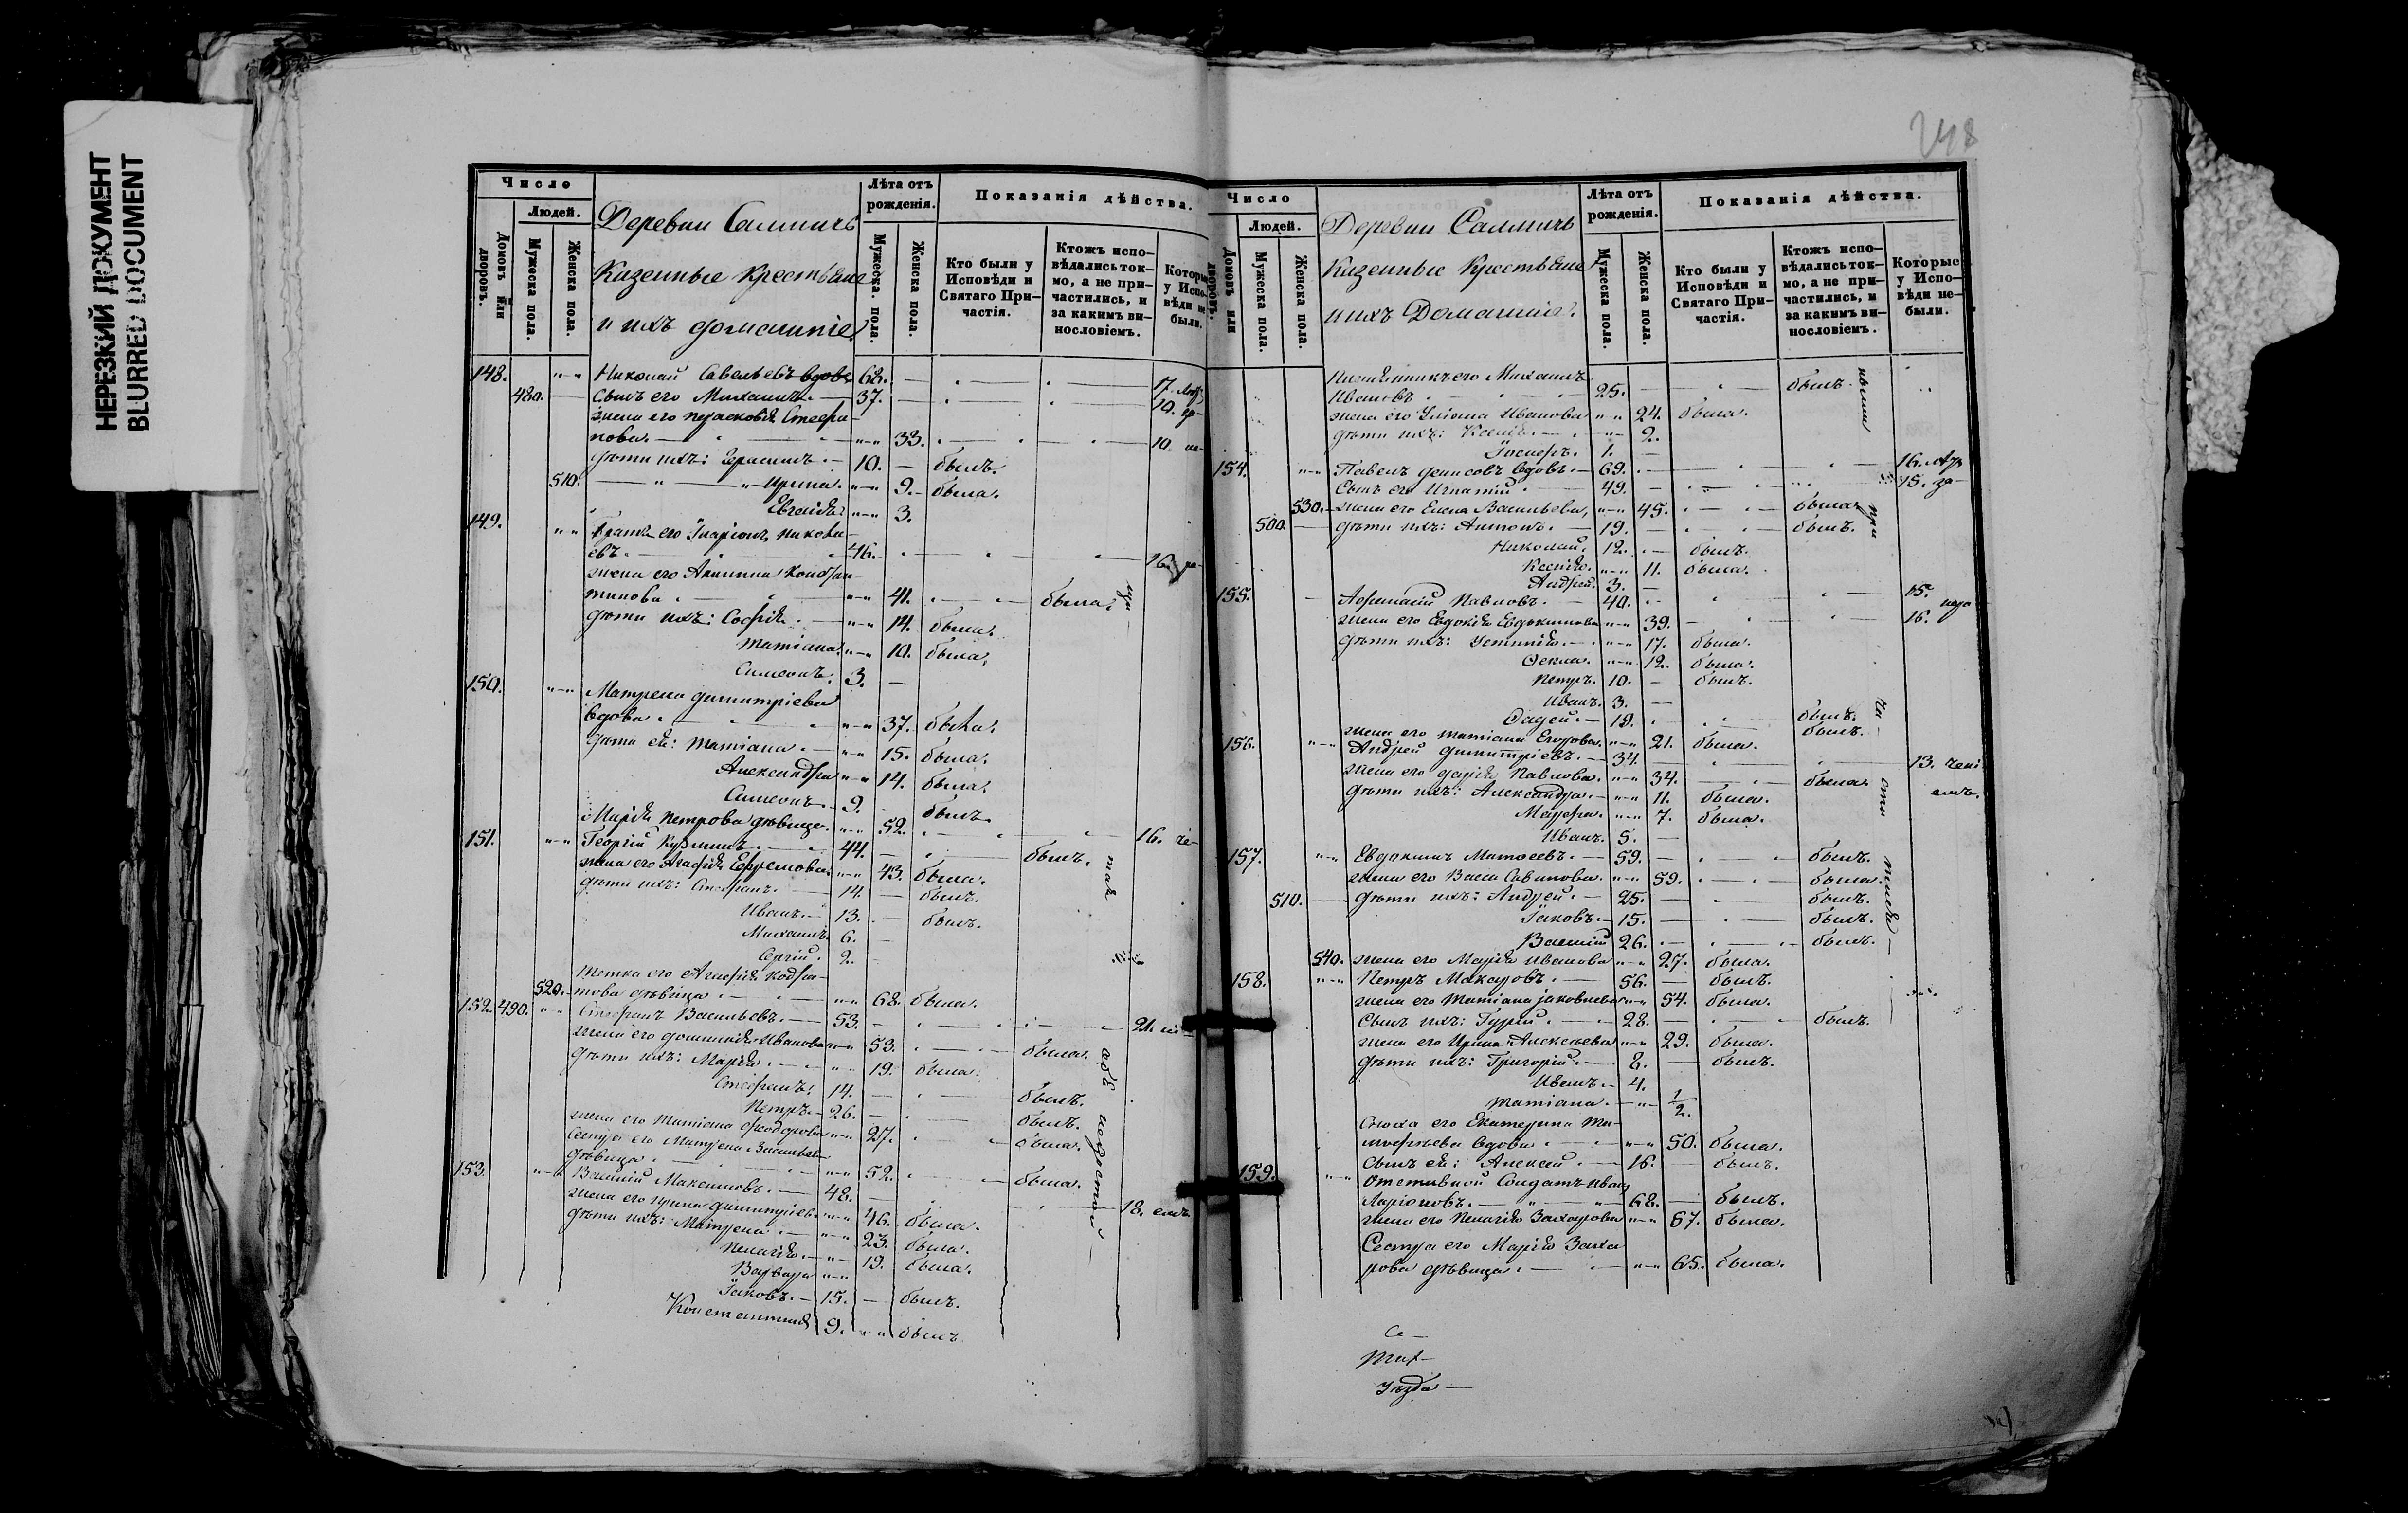 НЕРЕЗКИЙ ДОКУМЕНТ
BLURRED DOCUMENT
Число
Людей.
Домовъ или дворовъ.
Мужеска пола.
Женска пола.
Деревни
Казенные Крестьяне
и ихъ домашніе
Лѣта отъ рожденія.
Мужеска. пола.
Женска пола.
Показанія дѣйства.
Кто были у Исповѣди и Святаго При-частія.
Ктожъ испо-вѣдались ток-мо, а не при-частились, и за какимъ ви-нословіемъ.
Которые у Испо-вѣди не были.
148. Николай Савельевъ вдовъ 68. 17.
480. Сынъ его Михаилъ. 37. 10.
жена его Парасковія Стефа-
нова. 33. 10.
дѣти ихъ: Герасимъ. 10. былъ.
510. Ирина. 9. была.
Евгенія 3.
149. Братъ его Иларіонъ Никола-
евъ. 46. 16.
жена его Акилина Кондра-
тинова 41. была.
дѣти ихъ: Софія. 14. была.
Татіана. 10. была.
Симеонъ. 3.
150. Матрена Димитріева
вдова. 37. была.
дѣти ея: Татіана. 15. была.
Александра 14. была.
Симеонъ. 9. былъ.
Марія Петрова дѣвица. 52. 16.
151. Георгій Кузминъ. 44. былъ.
жена его Агафія Ефремова 43. была.
дѣти ихъ: Стефанъ. 14. былъ.
Иванъ. 13. былъ.
Михаилъ. 6.
Сергій. 2.
Тетка его Агафія Кодра-
520. това дѣвица. 68. была.
152. 490. Стефанъ Васильевъ. 53. 21.
жена его Домникія Иванова 53. была.
дѣти ихъ: Марія. 19. была.
Стефанъ. 14. былъ.
Петръ. 26. былъ.
жена его Татіана Феодорова 27. была.
Сестра его Матрена Васильева
дѣвица. 52. была.
153. Василій Максимовъ. 48. 18.
жена его Ирина Димитріева 46. была.
дѣти ихъ: Матрена. 23. была.
Пелагія. 19. была.
Варвара
Іаковъ. 15. былъ.
Константинъ 9. былъ.
248
Число
Людей.
Домовъ или дворовъ.
Мужеска пола.
Женска пола.
Деревни
Казенные Крестьяне
и ихъ Домашніе.
Лѣта отъ рожденія.
Мужеска пола.
Женска пола.
Показанія дѣйства.
Кто были у Исповѣди и Святаго При-частія.
Ктожъ испо-вѣдались ток-мо, а не при-частились, и за какимъ ви-нословіемъ.
Которые у Испо-вѣди не-были.
Племянникъ его Михаилъ
Ивановъ 25. былъ.
жена его Уліана Иванова 24. была.
дѣти ихъ: Ксенія. 2.
Іосифъ. 1.
154. Павелъ Денисовъ вдовъ. 69. 16.
Сынъ его Игнатій 49. 15.
530. жена его Елена Васильева, 45. была
500. дѣти ихъ: Антонъ. 19. былъ.
Николай. 12. былъ.
Ксенія. 11. была.
Андрей. 3.
155. Афанасій Павловъ. 40. 15.
жена его Евдокія Евдокимова 39. 16.
дѣти ихъ: Устинія. 17. была.
Фекла. 12. была.
Петръ. 10. былъ.
Иванъ. 3.
Фадей. 19. былъ.
жена его Татіана Егорова. 21. была.
156. Андрей Димитріевъ. 34. 13.
жена его Дарія Павлова. 34. была.
дѣти ихъ: Александра. 11. была.
Мавра. 7. была.
Иванъ. 5.
157. Евдокимъ Матѳеевъ. 59. былъ.
жена его Васса Савинова. 59. была.
510. дѣти ихъ: Андрей. 25. былъ.
Іаковъ. 15. былъ.
Василій 26. былъ.
540. жена его Марія Иванова 27. была.
158. Петръ Макаровъ. 56. былъ.
жена его Татіана Яковлева 54. была.
Сынъ ихъ: Гурій. 28. былъ.
жена его Ирина Алексѣева 29. была.
дѣти ихъ: Григорій. 8. былъ.
Иванъ. 4.
Татіана. 1/2.
Сноха его Екатерина Ти-
мофеева вдова. 50. была.
Сынъ ея: Алексей. 16. былъ.
159. Отставной Солдатъ Иванъ
Ларіоновъ. 68. былъ.
жена его Пелагія Захарова 67. была.
Сестра его Марія Заха
рова дѣвица. 65. была.
Уѣзда